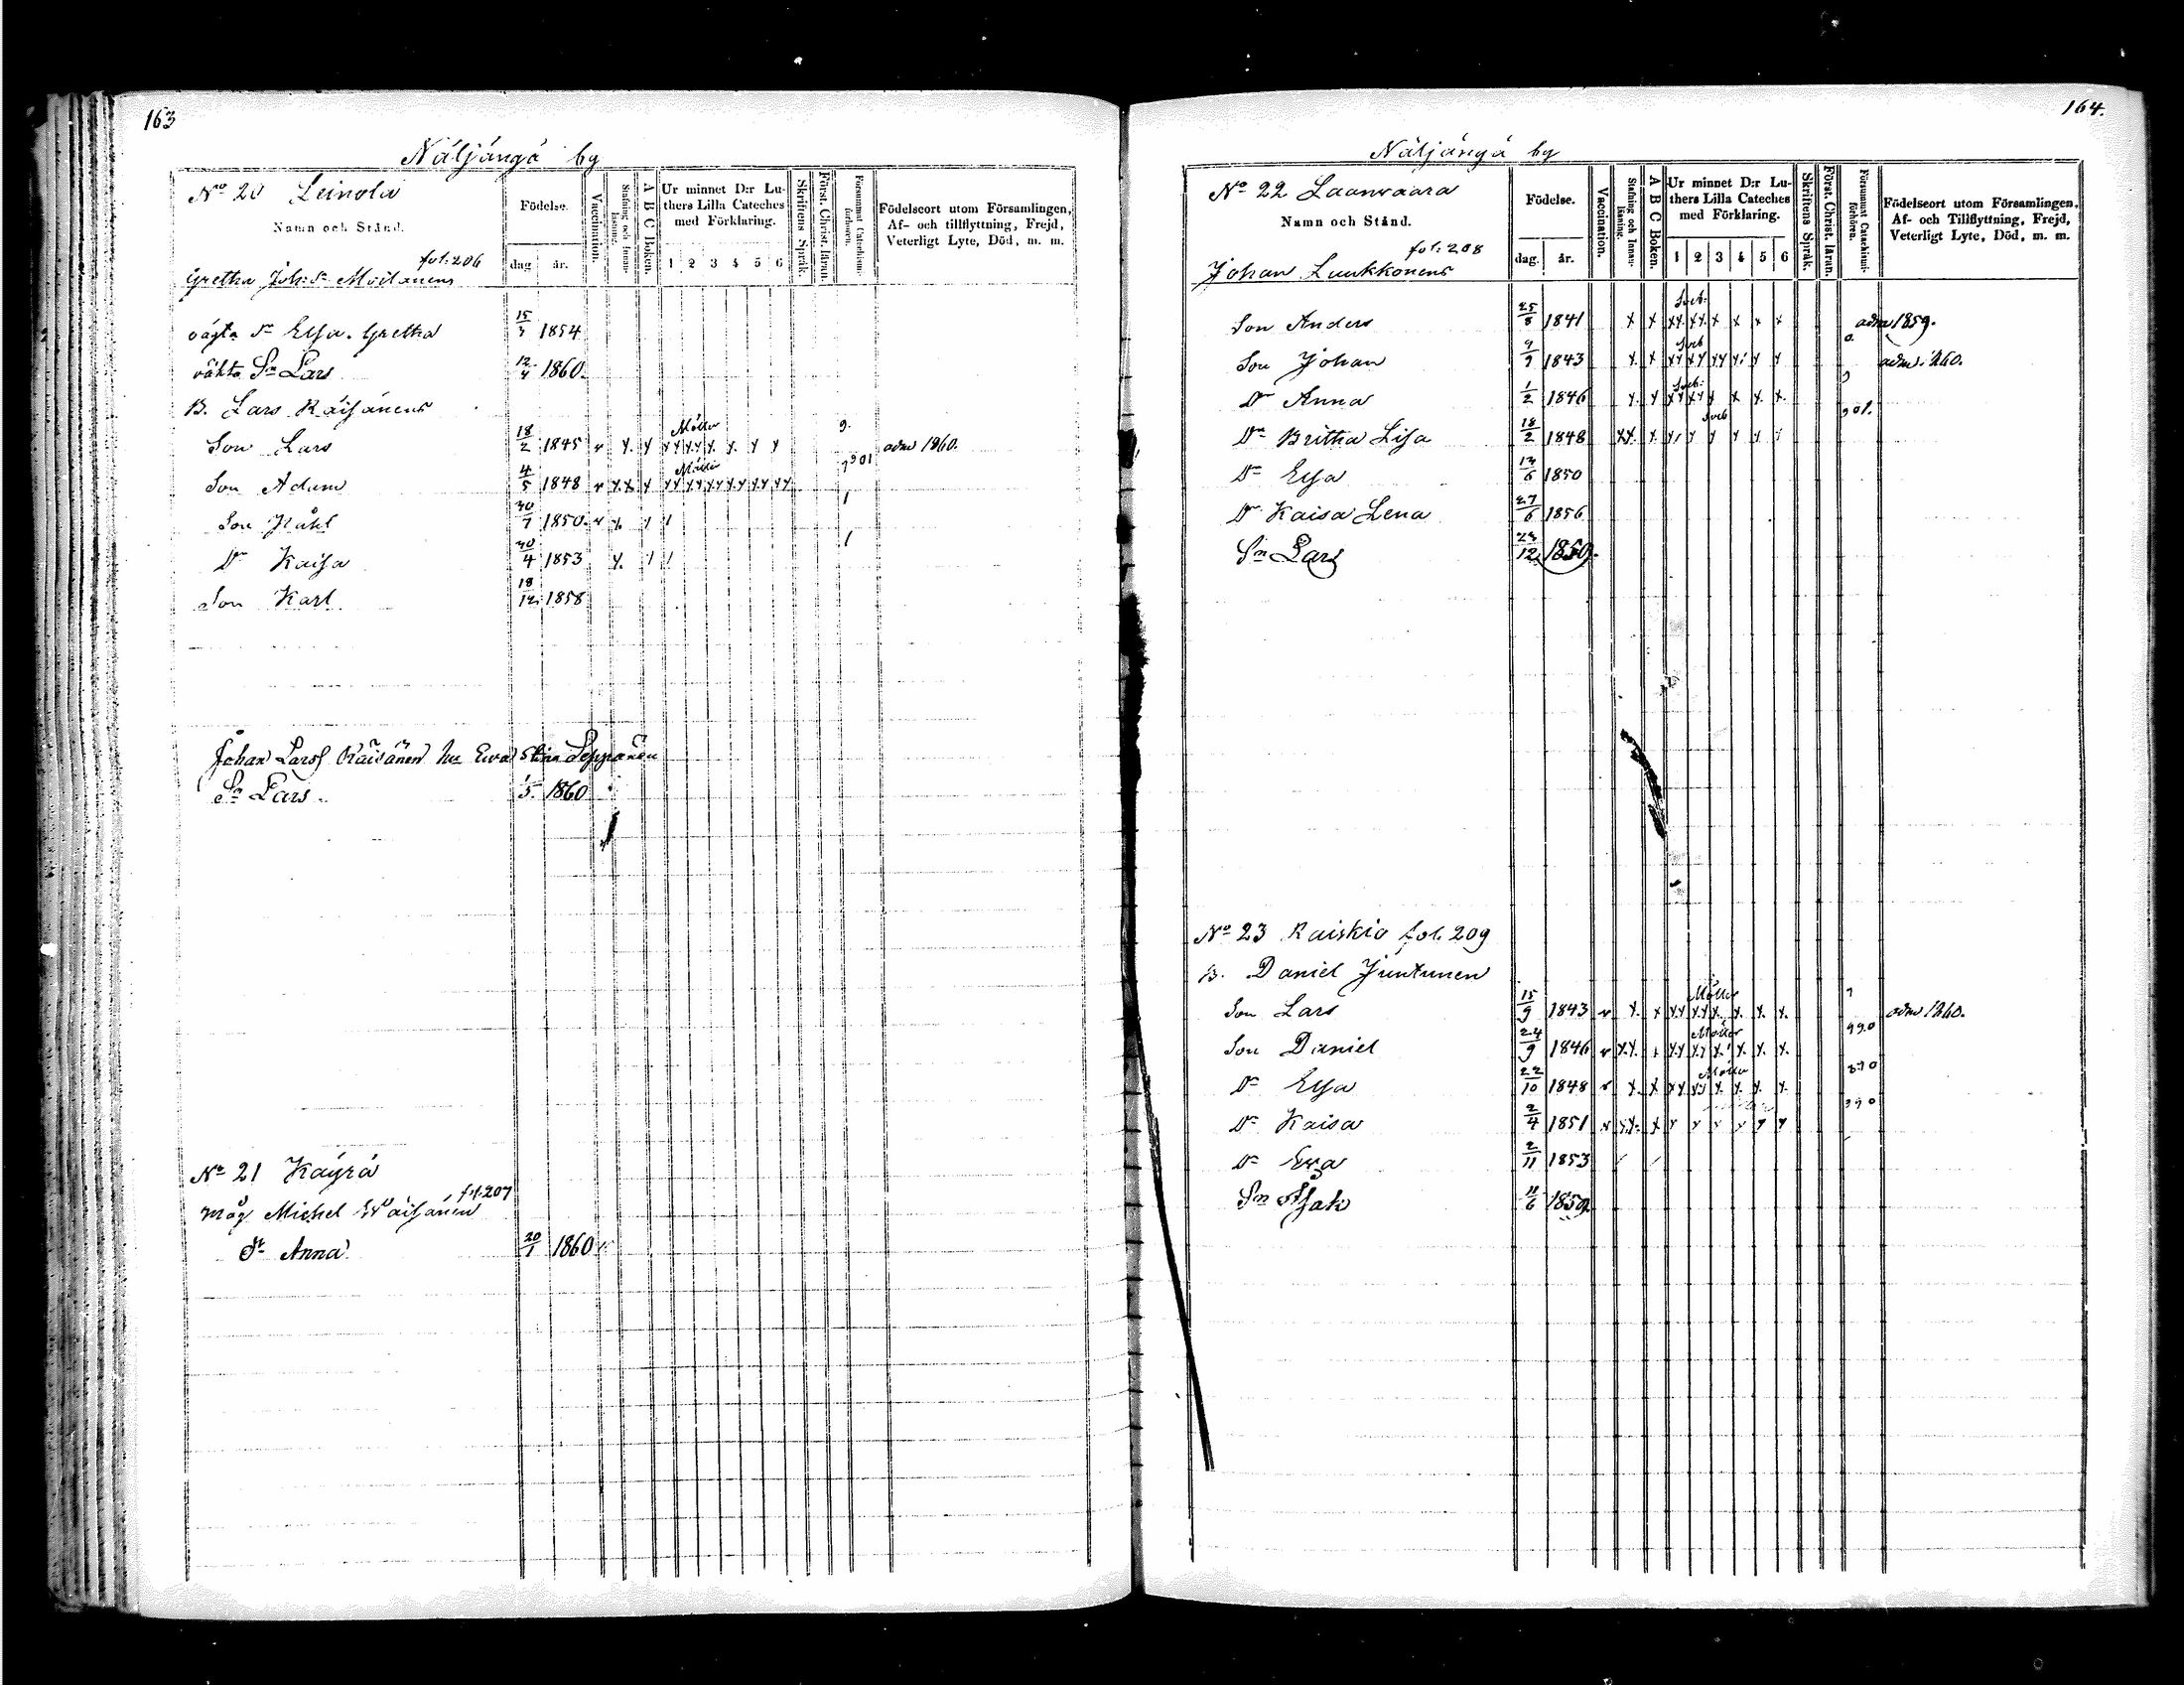 163
Näljängä by
No 20 Leinola
Namn och Stånd.
Födelse.
dag. år.
Vaccination.
Stafning och Innanläsning.
A B C Boken.
Ur minnet D:r Luthers Lilla Cateches med Förklaring.
1 2 3 4 5 6
Skriftens Språk.
Först. Christ. läran.
Försummat Catechismiförhören.
Födelseort utom Församlingen,
Af- och tillflyttning, Frejd,
Veterligt Lyte, Död, m. m.
fol: 206
Gretha Joh: Dr Moilanens
oägta Dr Elsa Gretha 15/3 1854
oäkta Sn Lars 12/4 1860
B. Lars Räisänens
Son Lars 18/2 1845 adm 1860.
Son Adam 4/5 1848
Son 30/7 1850
Dr Kaisa 30/4 1853
Son Karl 18/12 1858
Johan Larss Räisänen hu Ewa Stina Seppänen
Sn Lars 1860
No 21 Käyrä
fol. 207
Måg Michel Wäisänen
Dr Anna 20/1 1860
164.
Näljängä by
No 22 Laanwaara
Namn och Stånd.
Födelse.
dag. år.
Vaccination.
Stafning och Innanläsning.
A B C Boken.
Ur minnet D:r Luthers Lilla Cateches med Förklaring.
1 2 3 4 5 6
Skriftens Språk.
Först. Christ. läran.
Försummat Catechismiförhören.
Födelseort utom Församlingen,
Af- och Tillflyttning, Frejd,
Veterligt Lyte, Död, m. m.
fol: 208
Johan Luukkonens
Son Anders 25/8 1841 adm 1859.
Son Johan 9/9 1843 adm. 1860.
Dr Anna 1/2 1846
Dr Britha Lisa 18/2 1848
Dr Elsa 1850
Dr Kaisa Lena 27/6 1856
Sn Lars 23/12 1859.
No 23 Raiskio fol. 209
B. Daniel Juntunen
Son Lars 15/9 1843 adm 1860.
Son Daniel 24/9 1846
Dr Elsa 22/10 1848
Dr Kaisa 2/4 1851
Dr Ewa 2/11 1853
Sn Isak 11/6 1859